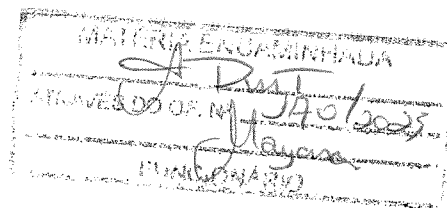 MATÉRIA ENCAMINHADA
A
ATRAVÉS DO OF. Nº 140/2023
Mayara
FUNCIONÁRIO